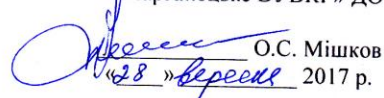 О.С. Мішков
«28» вересня 2017 р.